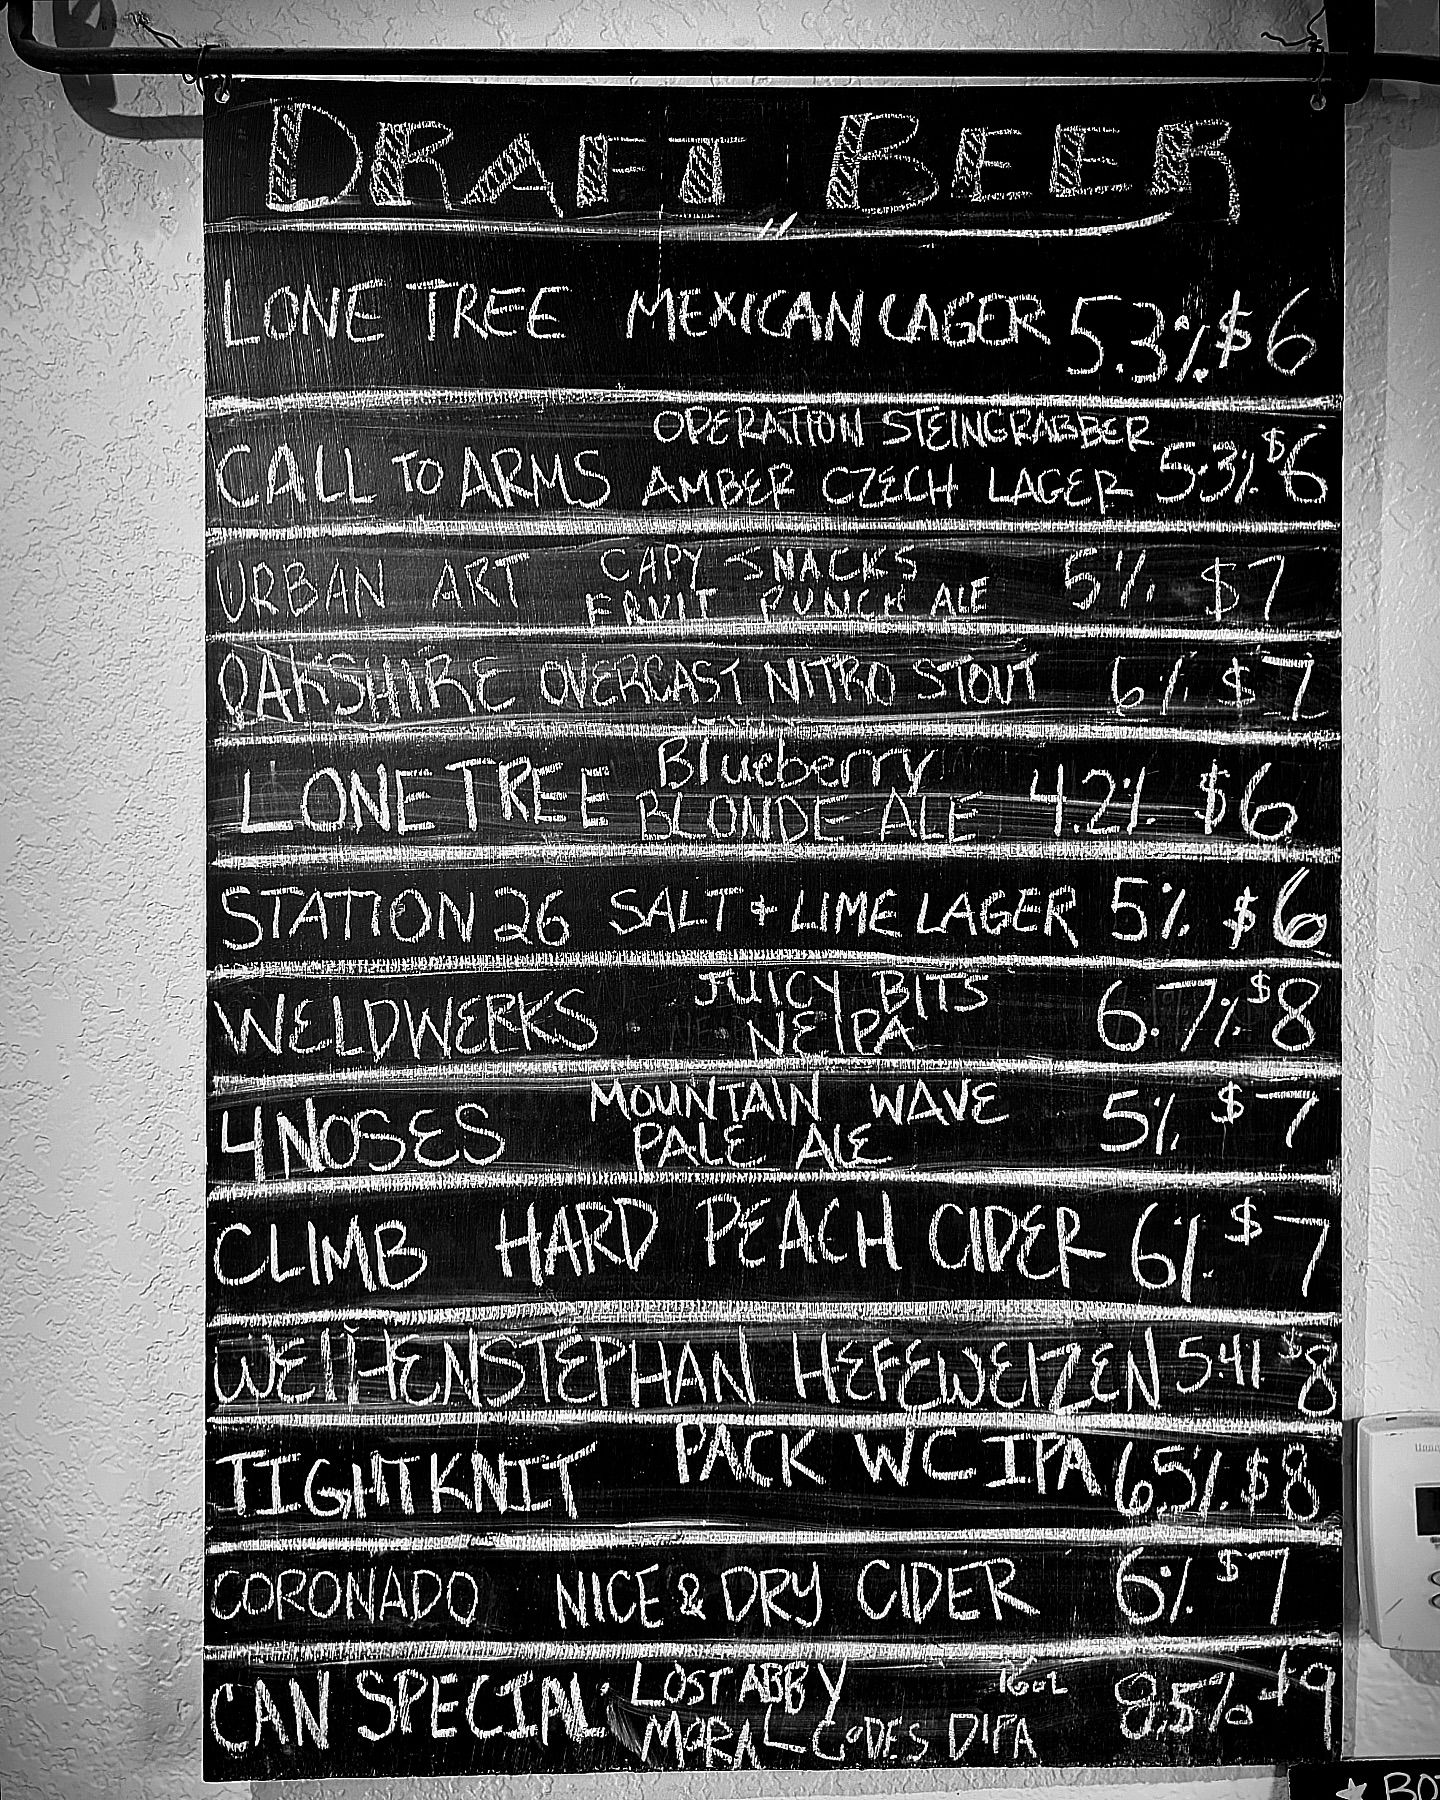 DRAFT BEER
LONE TREE MEXICAN LAGER 5.3% $6
OPERATION STEINGRABBER
CALL TO ARMS AMBER CZECH LAGER 5.3% $6
URBAN ART CAPY SNACKS 5% $7
FRUIT PUNCH ALE
OAKSHIRE OVERCAST NITRO STOUT 6% $7
LONE TREE Blueberry 4.2% $6
BLONDE ALE
STATION 26 SALT + LIME LAGER 5% $6
WELDWERKS JUICY BITS 6.7% $8
NEIPA
4 NOSES MOUNTAIN WAVE 5% $7
PALE ALE
CLIMB HARD PEACH CIDER 6% $7
WEIHENSTEPHAN HEFEWEIZEN 5.4% $8
TIGHTKNIT PACK WC IPA 6.5% $8
CORONADO NICE & DRY CIDER 6% $7
CAN SPECIAL: LOST ABBY 16oz 8.5% $9
MORAL CODES DIPA